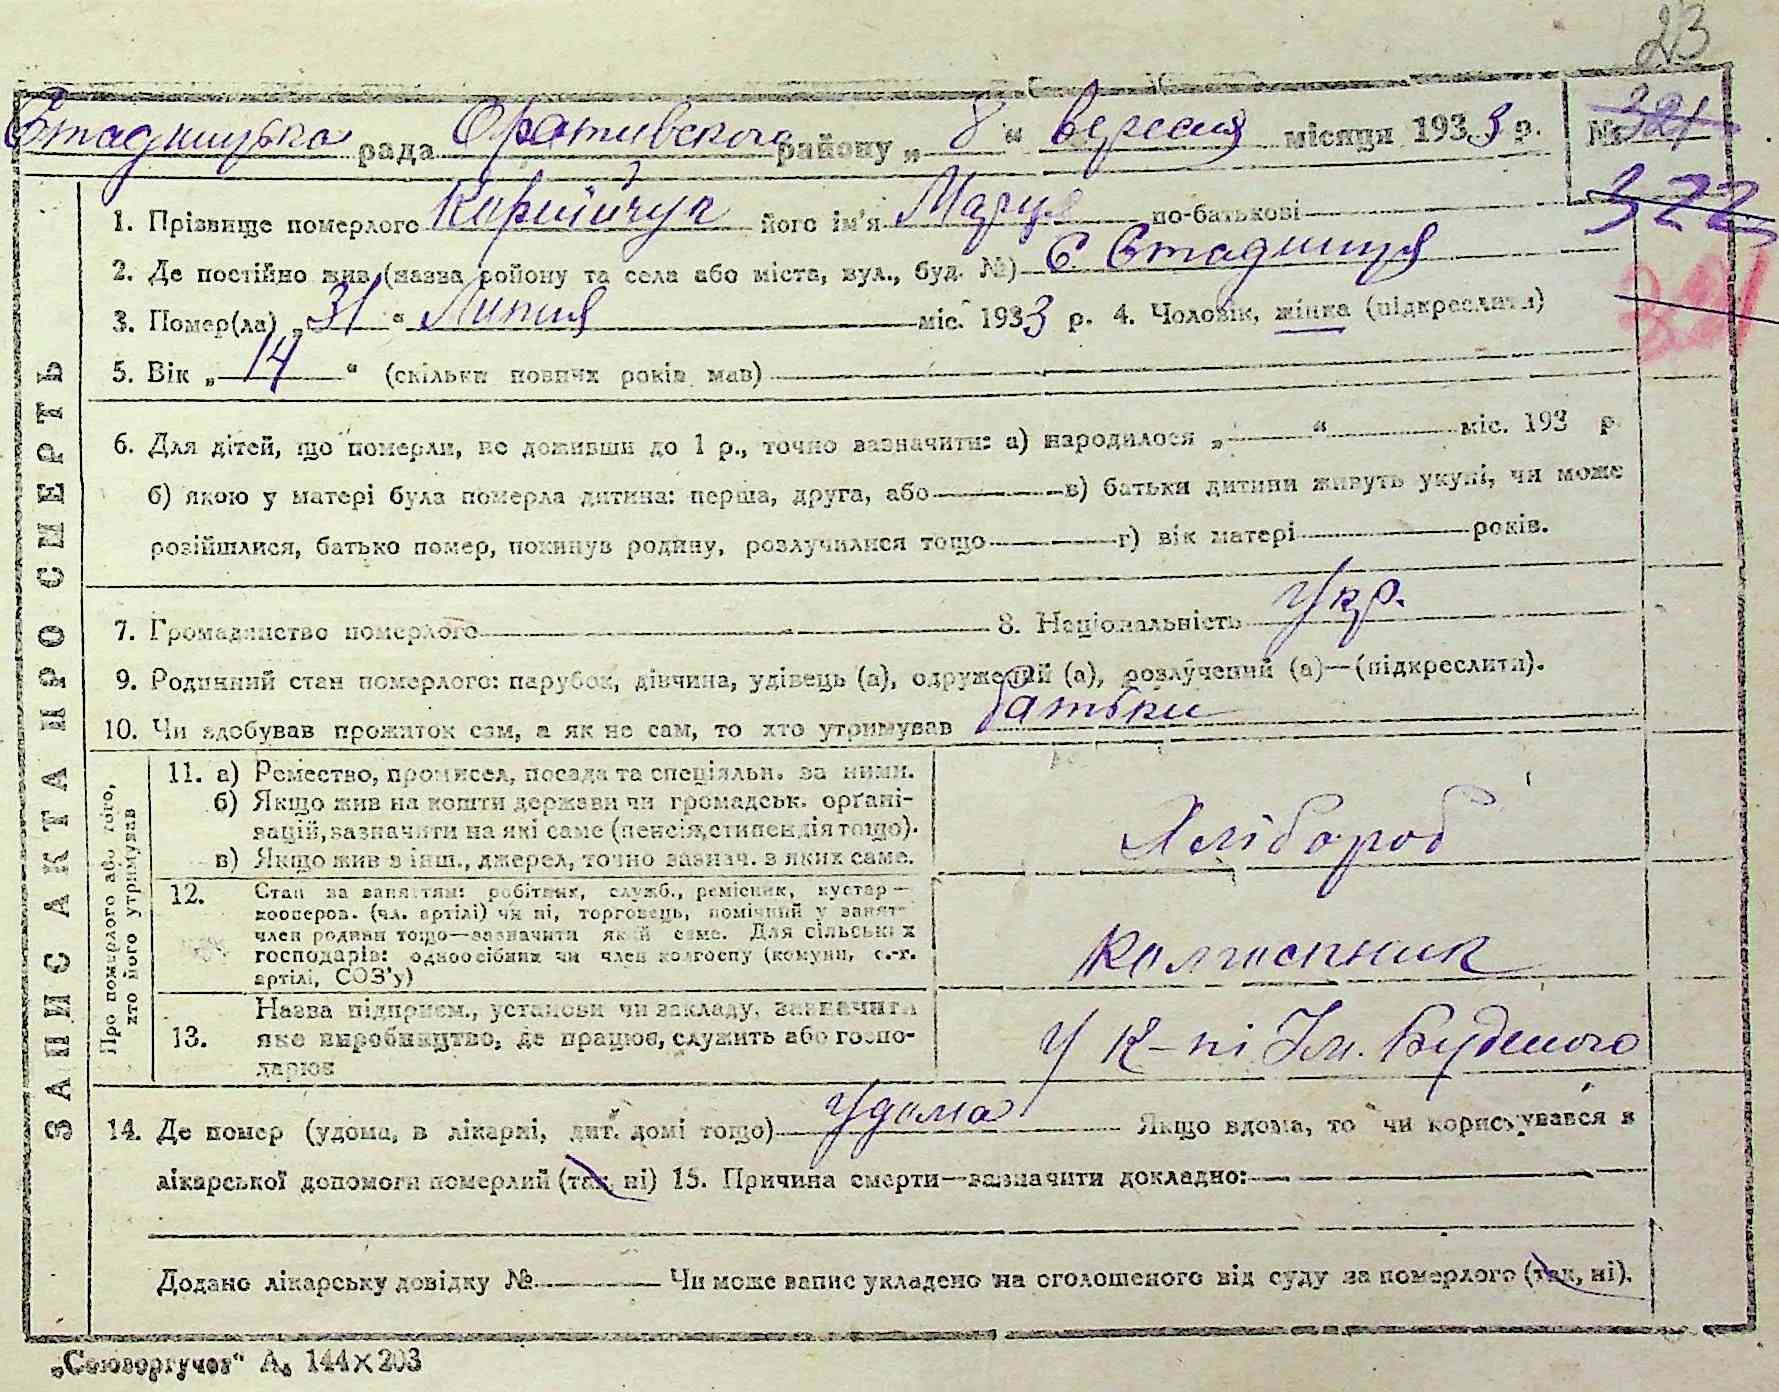 23
Стадницька рада Оратівського району „ 8 “ вересня місяця 1933 р. № 321
322
321
1. Прізвище померлого Корнійчук його ім'я Марця по-батькові
2. Де постійно жив (назва району та села або міста, вул., буд. №) С Стадниця
3. Помер(ла) „ 31 “ Липня міс. 1933 р. 4. Чоловік, жінка (підкреслити)
5. Вік „ 14 “ (скільки повних років мав)
6. Для дітей, що померли, не доживши до 1 р., точно зазначити: а) народилося „ “ міс. 193 р.
б) якою у матері була померла дитина: перша, друга, або в) батьки дитини живуть укупі, чи може
розійшлися, батько помер, покинув родину, розлучилися тощо г) вік матері років.
7. Громадянство померлого 8. Національність Укр.
9. Родинний стан померлого: парубок, дівчина, удівець (а), одружений (а), розлучений (а)—(підкреслити).
10. Чи здобував прожиток сам, а як не сам, то хто утримував батьки
ЗАПИС АКТА ПРО СМЕРТЬ
Про померлого або того, хто його утримував
11. а) Ремество, промисел, посада та спеціяльн. за ними.
б) Якщо жив на кошти держави чи громадськ. орґані-
зацій, зазначити на які саме (пенсія, стипендія тощо).
в) Якщо жив з інш., джерел, точно зазнач. з яких саме.
Хлібороб
12. Стан за заняттям: робітник, служб., ремісник, кустар—
кооперов. (чл. артілі) чи ні, торговець, помічний у занят-
член родини тощо—зазначити який саме. Для сільських
господарів: одноосібник чи член колгоспу (комуни, с.-г.
артілі, СОЗ'у)
колгоспник
13. Назва підприєм., установи чи закладу, зазначити
яке виробництво, де працює, служить або госпо-
дарює
у К-пі Ім. Будьоного
14. Де помер (удома, в лікарні, дит. домі тощо) Удома Якщо вдома, то чи користувався з
лікарської допомоги померлий (так, ні) 15. Причина смерти—зазначити докладно:
Додано лікарську довідку № Чи може запис укладено на оголошеного від суду за померлого (так, ні).
„Союзоргучет“ А₆ 144×203